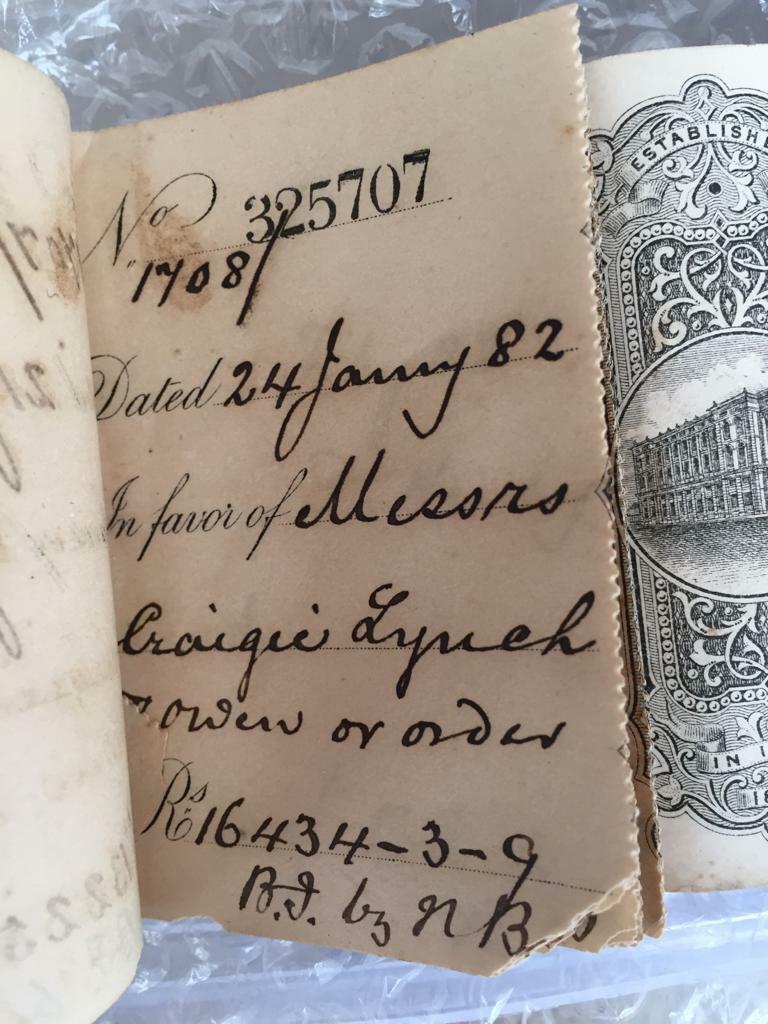 No 325707
1708/
Dated 24 Jany 82
In favor of Messrs
Craigie Lynch
& Owen or order
Rs 16434-3-9
ESTABLISHE
IN